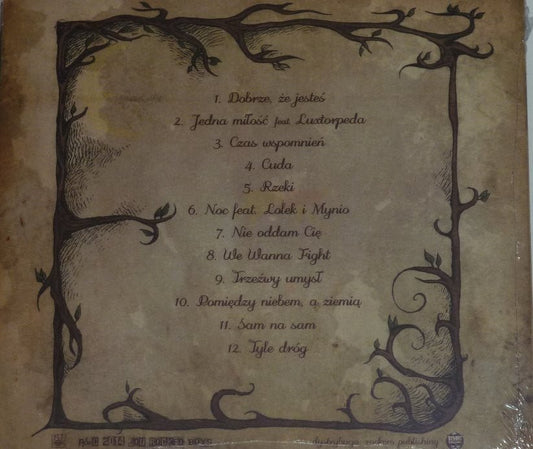 1. Dobrze, że jesteś
2. Jedna miłość feat. Luxtorpeda
3. Czas wspomnień
4. Cuda
5. Rzeki
6. Noc feat. Lolek i Mynio
7. Nie oddam Cię
8. We Wanna Fight
9. Trzeźwy umysł
10. Pomiędzy niebem, a ziemią
11. Sam na sam
12. Tyle dróg
dystrybucja: rockers publishing